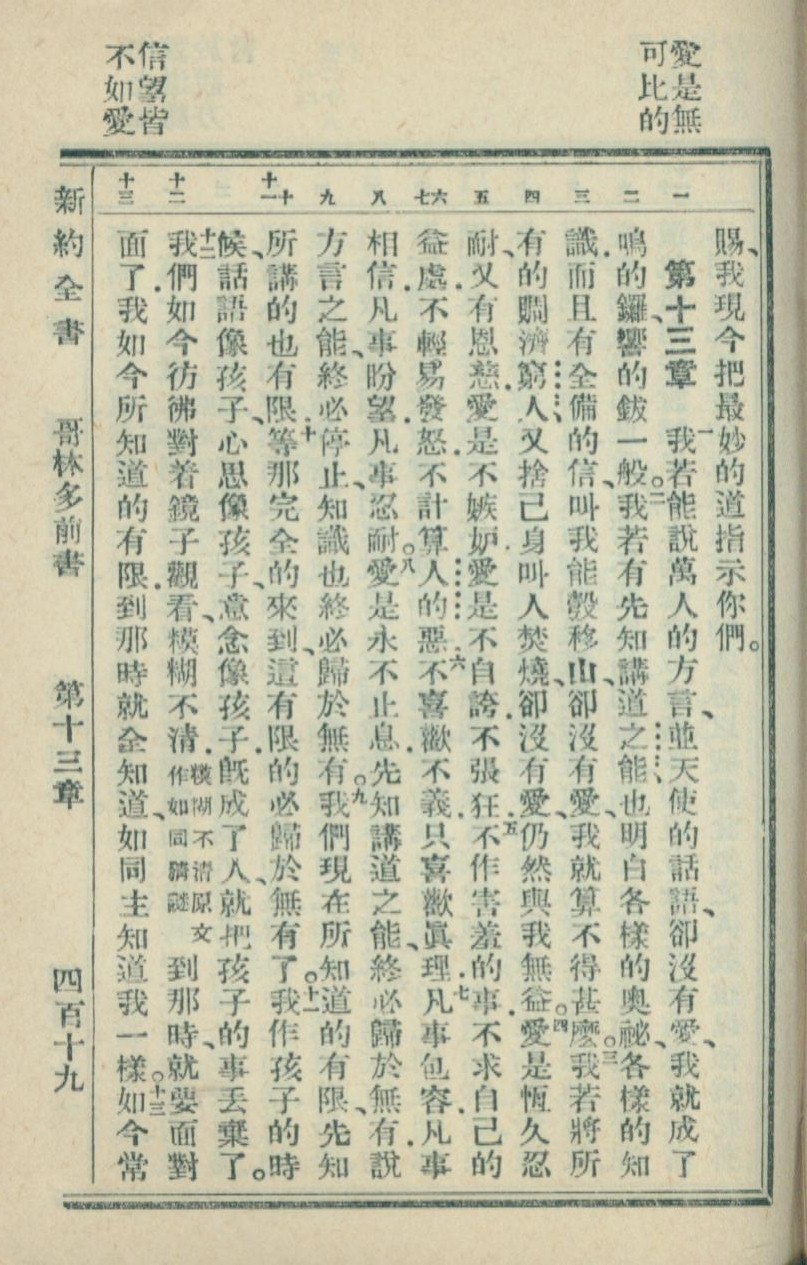 愛是無
可比的
信望皆
不如愛
一
二
三
四
五
六
七
八
九
十
十一
十二
十三
賜、我現今把最妙的道指示你們。
第十三章 一我若能說萬人的方言、並天使的話語、卻沒有愛、我就成了
鳴的鑼、響的鈸一般。二我若有先知講道之能、也明白各樣的奧祕、各樣的知
識.而且有全備的信、叫我能彀移山、卻沒有愛、我就算不得甚麼。三我若將所
有的賙濟窮人、又捨己身叫人焚燒、卻沒有愛、仍然與我無益。四愛是恆久忍
耐、又有恩慈.愛是不嫉妒.愛是不自誇.不張狂.五不作害羞的事.不求自己的
益處.不輕易發怒.不計算人的惡.六不喜歡不義.只喜歡眞理.七凡事包容.凡事
相信.凡事盼望.凡事忍耐。八愛是永不止息.先知講道之能、終必歸於無有.說
方言之能、終必停止、知識也終必歸於無有。九我們現在所知道的有限、先知
所講的也有限.十等那完全的來到、這有限的必歸於無有了。十一我作孩子的時
候、話語像孩子、心思像孩子、意念像孩子.旣成了人、就把孩子的事丟棄了。
十二我們如今彷彿對着鏡子觀看、糢糊不清.糢糊不清原文作如同猜謎到那時、就要面對
面了.我如今所知道的有限.到那時就全知道、如同主知道我一樣。十三如今常
新約全書 哥林多前書 第十三章 四百十九